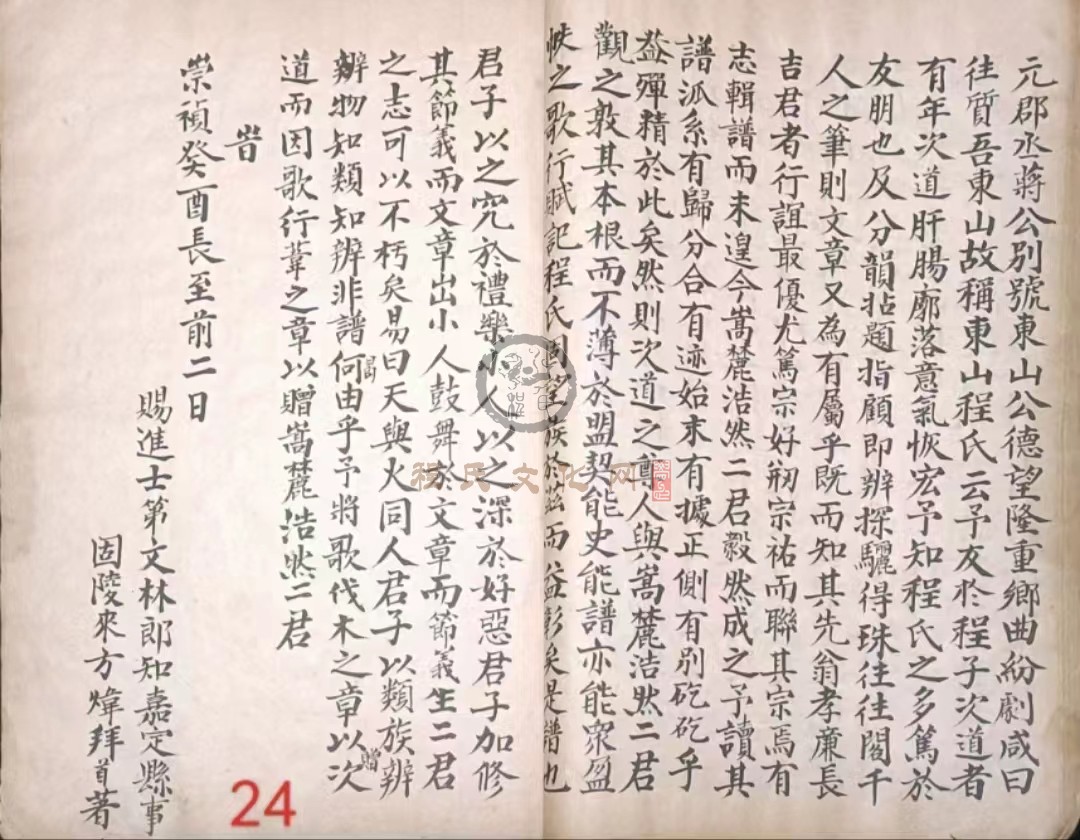 元郡丞蔣公別號東山公德望隆重鄉曲紛劇咸曰
往質吾東山故稱東山程氏云予友於程子次道者
有年次道肝腸廓落意氣恢宏予知程氏之多篤於
友朋也及分韻拈題指顧即辨探驪得珠往往閣千
人之筆則文章又為有屬乎既而知其先翁孝廉長
吉君者行誼最優尤篤宗好刱宗祐而聯其宗焉有
志輯譜而未遑今嵩麓浩然二君毅然成之予讀其
譜派系有歸分合有迹始末有據正側有別矻矻乎
益殫精於此矣然則次道之尊人與嵩麓浩然二君
觀之敦其本根而不薄於盟契能史能譜亦能眾盈
帙之歌行賦記程氏固望族於茲而益彰矣是譜也
君子以之究於禮樂小人以之深於好惡君子加修
其節義而文章出小人鼓舞於文章而節義生二君
之志可以不朽矣易曰天與火同人君子以類族辨
辨物知類知辨非譜何由乎予將歌伐木之章以贈次
道而因歌行葦之章以贈嵩麓浩然二君
旹
崇禎癸酉長至前二日
賜進士第文林郎知嘉定縣事
固陵來方煒拜首著
程氏文化网
24